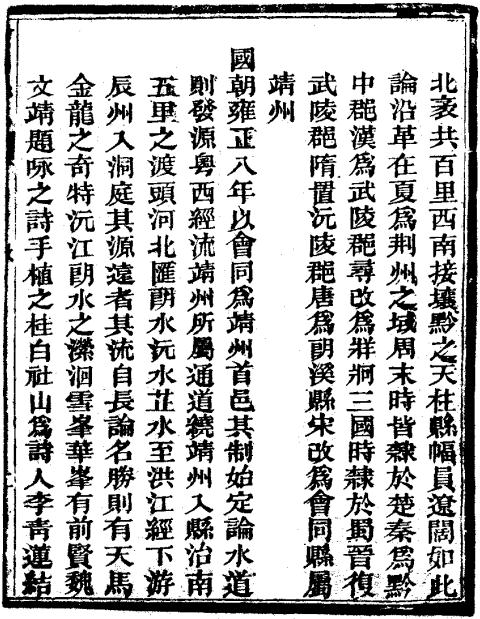 北袤共百里西南接壤黔之天柱縣幅員遼闊如此
論沿革在夏爲荆州之域周末時皆隸於楚秦爲黔
中郡漢爲武陵郡尋改爲牂牁三國時隸於蜀晉復
武陵郡隋置沅陵郡唐爲朗溪縣宋改爲會同縣屬
靖州
國朝雍正八年以會同爲靖州首邑其制始定論水道
則發源粤西經流靖州所屬通道繞靖州入縣治南
五里之渡頭河北匯朗水沅水芷水至洪江經下游
辰州入洞庭其源遠者其流自長論名勝則有天馬
金龍之奇特沅江朗水之瀠洄雪峯華峯有前賢魏
文靖題咏之詩手植之桂白社山爲詩人李靑蓮結